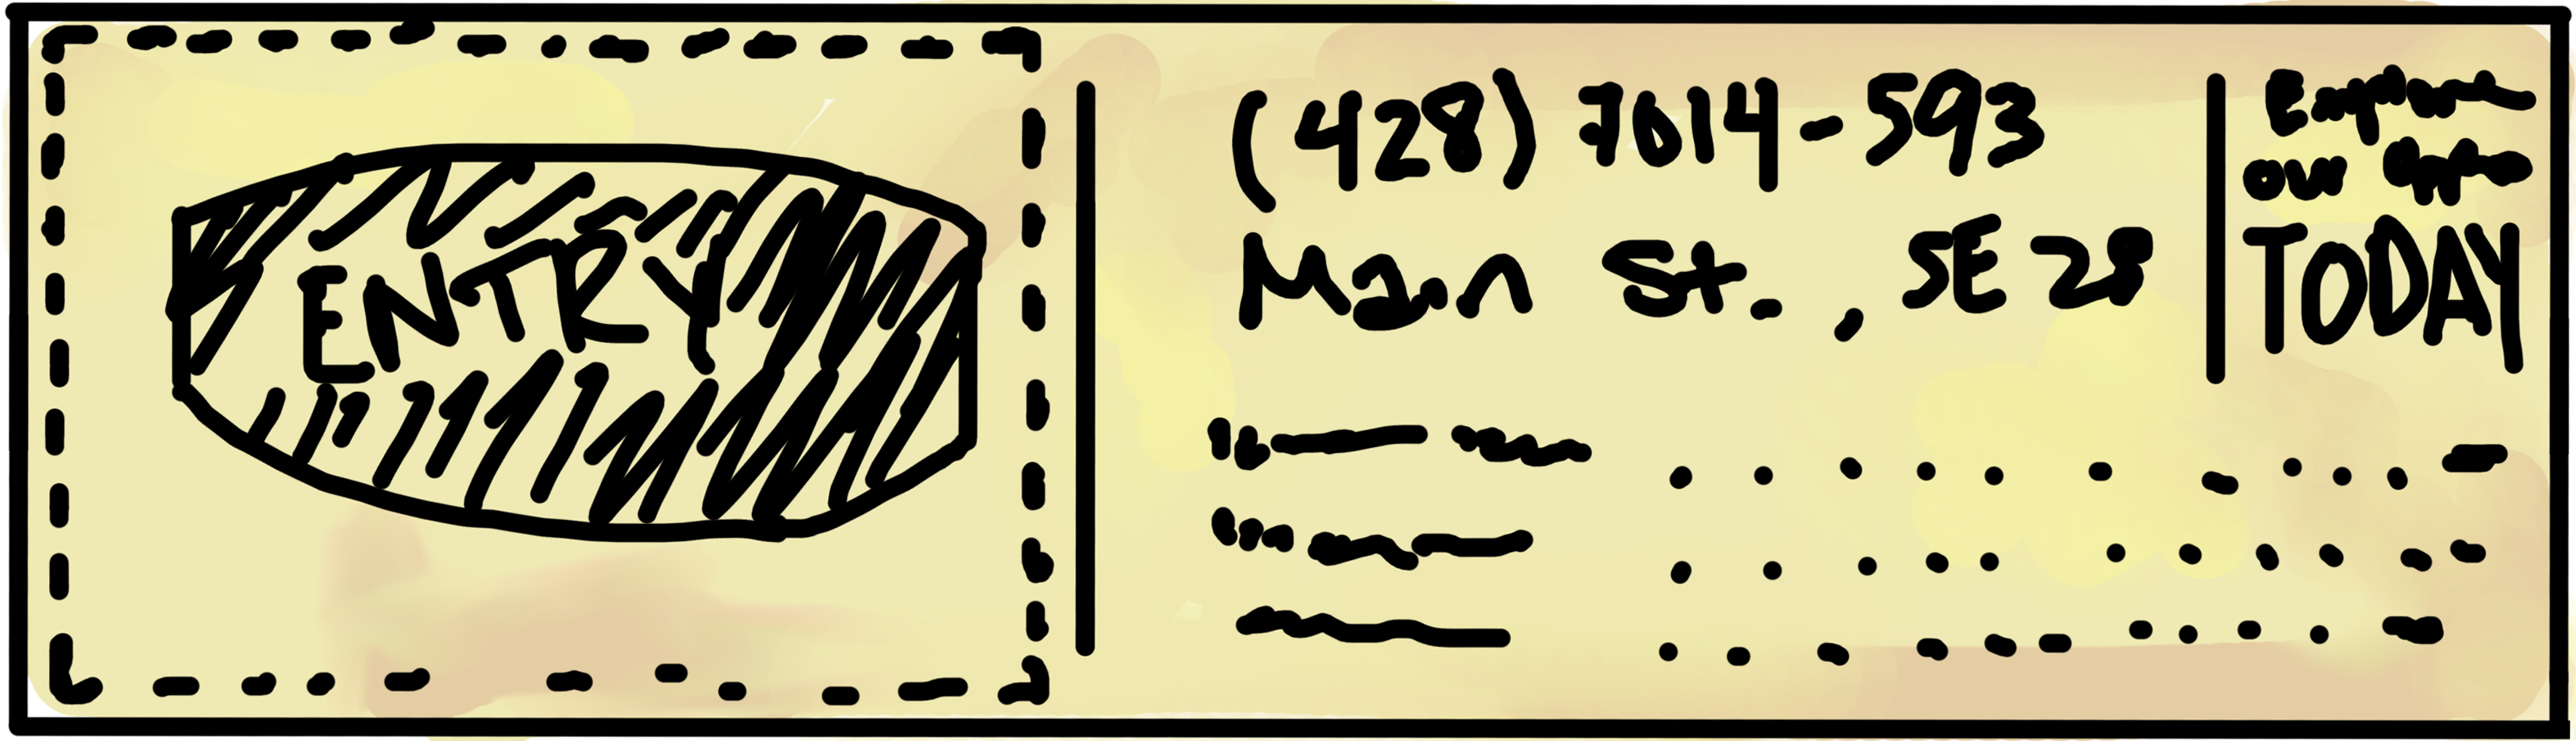 ENTRY
(428) 7014-593
Main St. , SE 28
Explore
our
TODAY